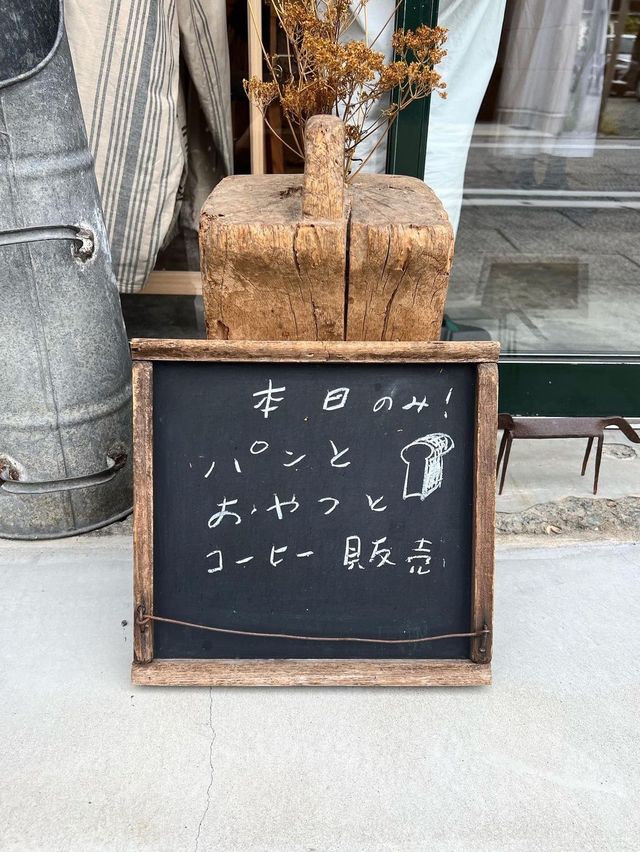 本日のみ!
パンと
おやつと
コーヒー 販売